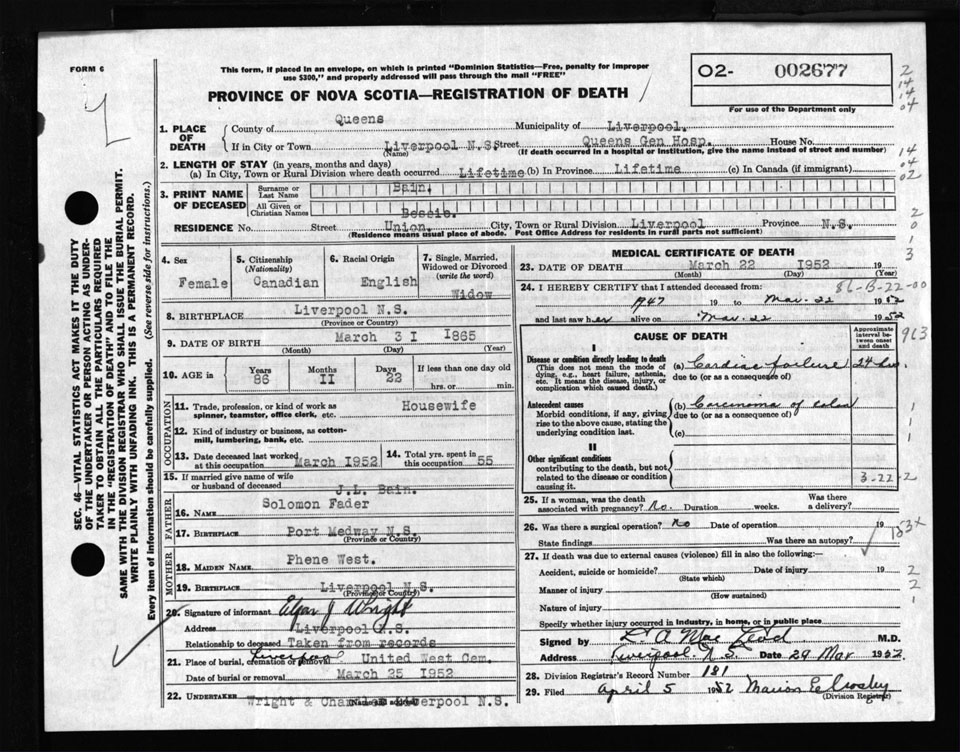 FORM 6
This form, if placed in an envelope, on which is printed "Dominion Statistics—Free, penalty for improper
use $300," and properly addressed will pass through the mail "FREE"
O2- 002677
For use of the Department only
PROVINCE OF NOVA SCOTIA—REGISTRATION OF DEATH
2
14
14
04
14
04
02
2
0
1
3
SEC. 46—VITAL STATISTICS ACT MAKES IT THE DUTY
OF THE UNDERTAKER OR PERSON ACTING AS UNDER-
TAKER TO OBTAIN ALL THE PARTICULARS REQUIRED
IN THE "REGISTRATION OF DEATH" AND TO FILE THE
SAME WITH THE DIVISION REGISTRAR WHO SHALL ISSUE THE BURIAL PERMIT.
WRITE PLAINLY WITH UNFADING INK. THIS IS A PERMANENT RECORD.
Every item of information should be carefully supplied. (See reverse side for instructions.)
1. PLACE OF DEATH County of Queens Municipality of Liverpool.
If in City or Town Liverpool N.S. Street Queens Gen Hosp. House No.
(Name) (If death occurred in a hospital or institution, give the name instead of street and number)
2. LENGTH OF STAY (in years, months and days)
(a) In City, Town or Rural Division where death occurred Lifetime (b) In Province Lifetime (c) In Canada (if immigrant)
3. PRINT NAME OF DECEASED Surname or Last Name Bain.
All Given or Christian Names Bessie.
RESIDENCE No. Street Union. City, Town or Rural Division Liverpool Province N.S.
(Residence means usual place of abode. Post Office Address for residents in rural parts not sufficient)
4. Sex Female
5. Citizenship (Nationality) Canadian
6. Racial Origin English
7. Single, Married, Widowed or Divorced (write the word) Widow
8. BIRTHPLACE Liverpool N.S.
(Province or Country)
9. DATE OF BIRTH March 3I I865
(Month) (Day) (Year)
10. AGE in Years 86 Months II Days 22 If less than one day old hrs. or min.
OCCUPATION
11. Trade, profession, or kind of work as spinner, teamster, office clerk, etc. Housewife
12. Kind of industry or business, as cotton-mill, lumbering, bank, etc.
13. Date deceased last worked at this occupation March I952
14. Total yrs. spent in this occupation 55
15. If married give name of wife or husband of deceased J.L. Bain.
FATHER
16. NAME Solomon Fader
17. BIRTHPLACE Port Medway N.S.
(Province or Country)
MOTHER
18. MAIDEN NAME Phene West.
19. BIRTHPLACE Liverpool N.S.
(Province or Country)
20. Signature of informant Elgar J Wright
Address Liverpool N.S.
Relationship to deceased Taken from records
21. Place of burial, cremation or removal Liverpool United West Cem.
Date of burial or removal March 25 I952
22. UNDERTAKER Wright & Liverpool N.S.
(Name and address)
MEDICAL CERTIFICATE OF DEATH
23. DATE OF DEATH March 22 I952 19
(Month) (Day) (Year)
24. I HEREBY CERTIFY that I attended deceased from: 86-B-22-00
1947 19 to Mar. 22 1952
and last saw her alive on Mar. 22 1952
CAUSE OF DEATH
Approximate interval between onset and death
963
I
Disease or condition directly leading to death
(This does not mean the mode of dying, e.g., heart failure, asthenia, etc. It means the disease, injury, or complication which caused death.)
(a) Cardiac failure 24 hrs.
due to (or as a consequence of)
Antecedent causes
Morbid conditions, if any, giving rise to the above cause, stating the underlying condition last.
(b) Carcinoma of colon
due to (or as a consequence of)
(c)
1
1
1
II
Other significant conditions
contributing to the death, but not related to the disease or condition causing it.
3-22-2
25. If a woman, was the death associated with pregnancy? No. Duration weeks. Was there a delivery?
26. Was there surgical operation? No Date of operation 19
State findings Was there an autopsy?
153x
27. If death was due to external causes (violence) fill in also the following:—
Accident, suicide or homicide? Date of injury 19
(State which)
Manner of injury
(How sustained)
Nature of injury
Specify whether injury occurred in industry, in home, or in public place
2
2
1
Signed by L. A. MacLeod M.D.
Address Liverpool. N.S. Date 29 Mar 1952.
28. Division Registrar's Record Number 181
29. Filed April 5 1952 Marion E Crosby
(Division Registrar)